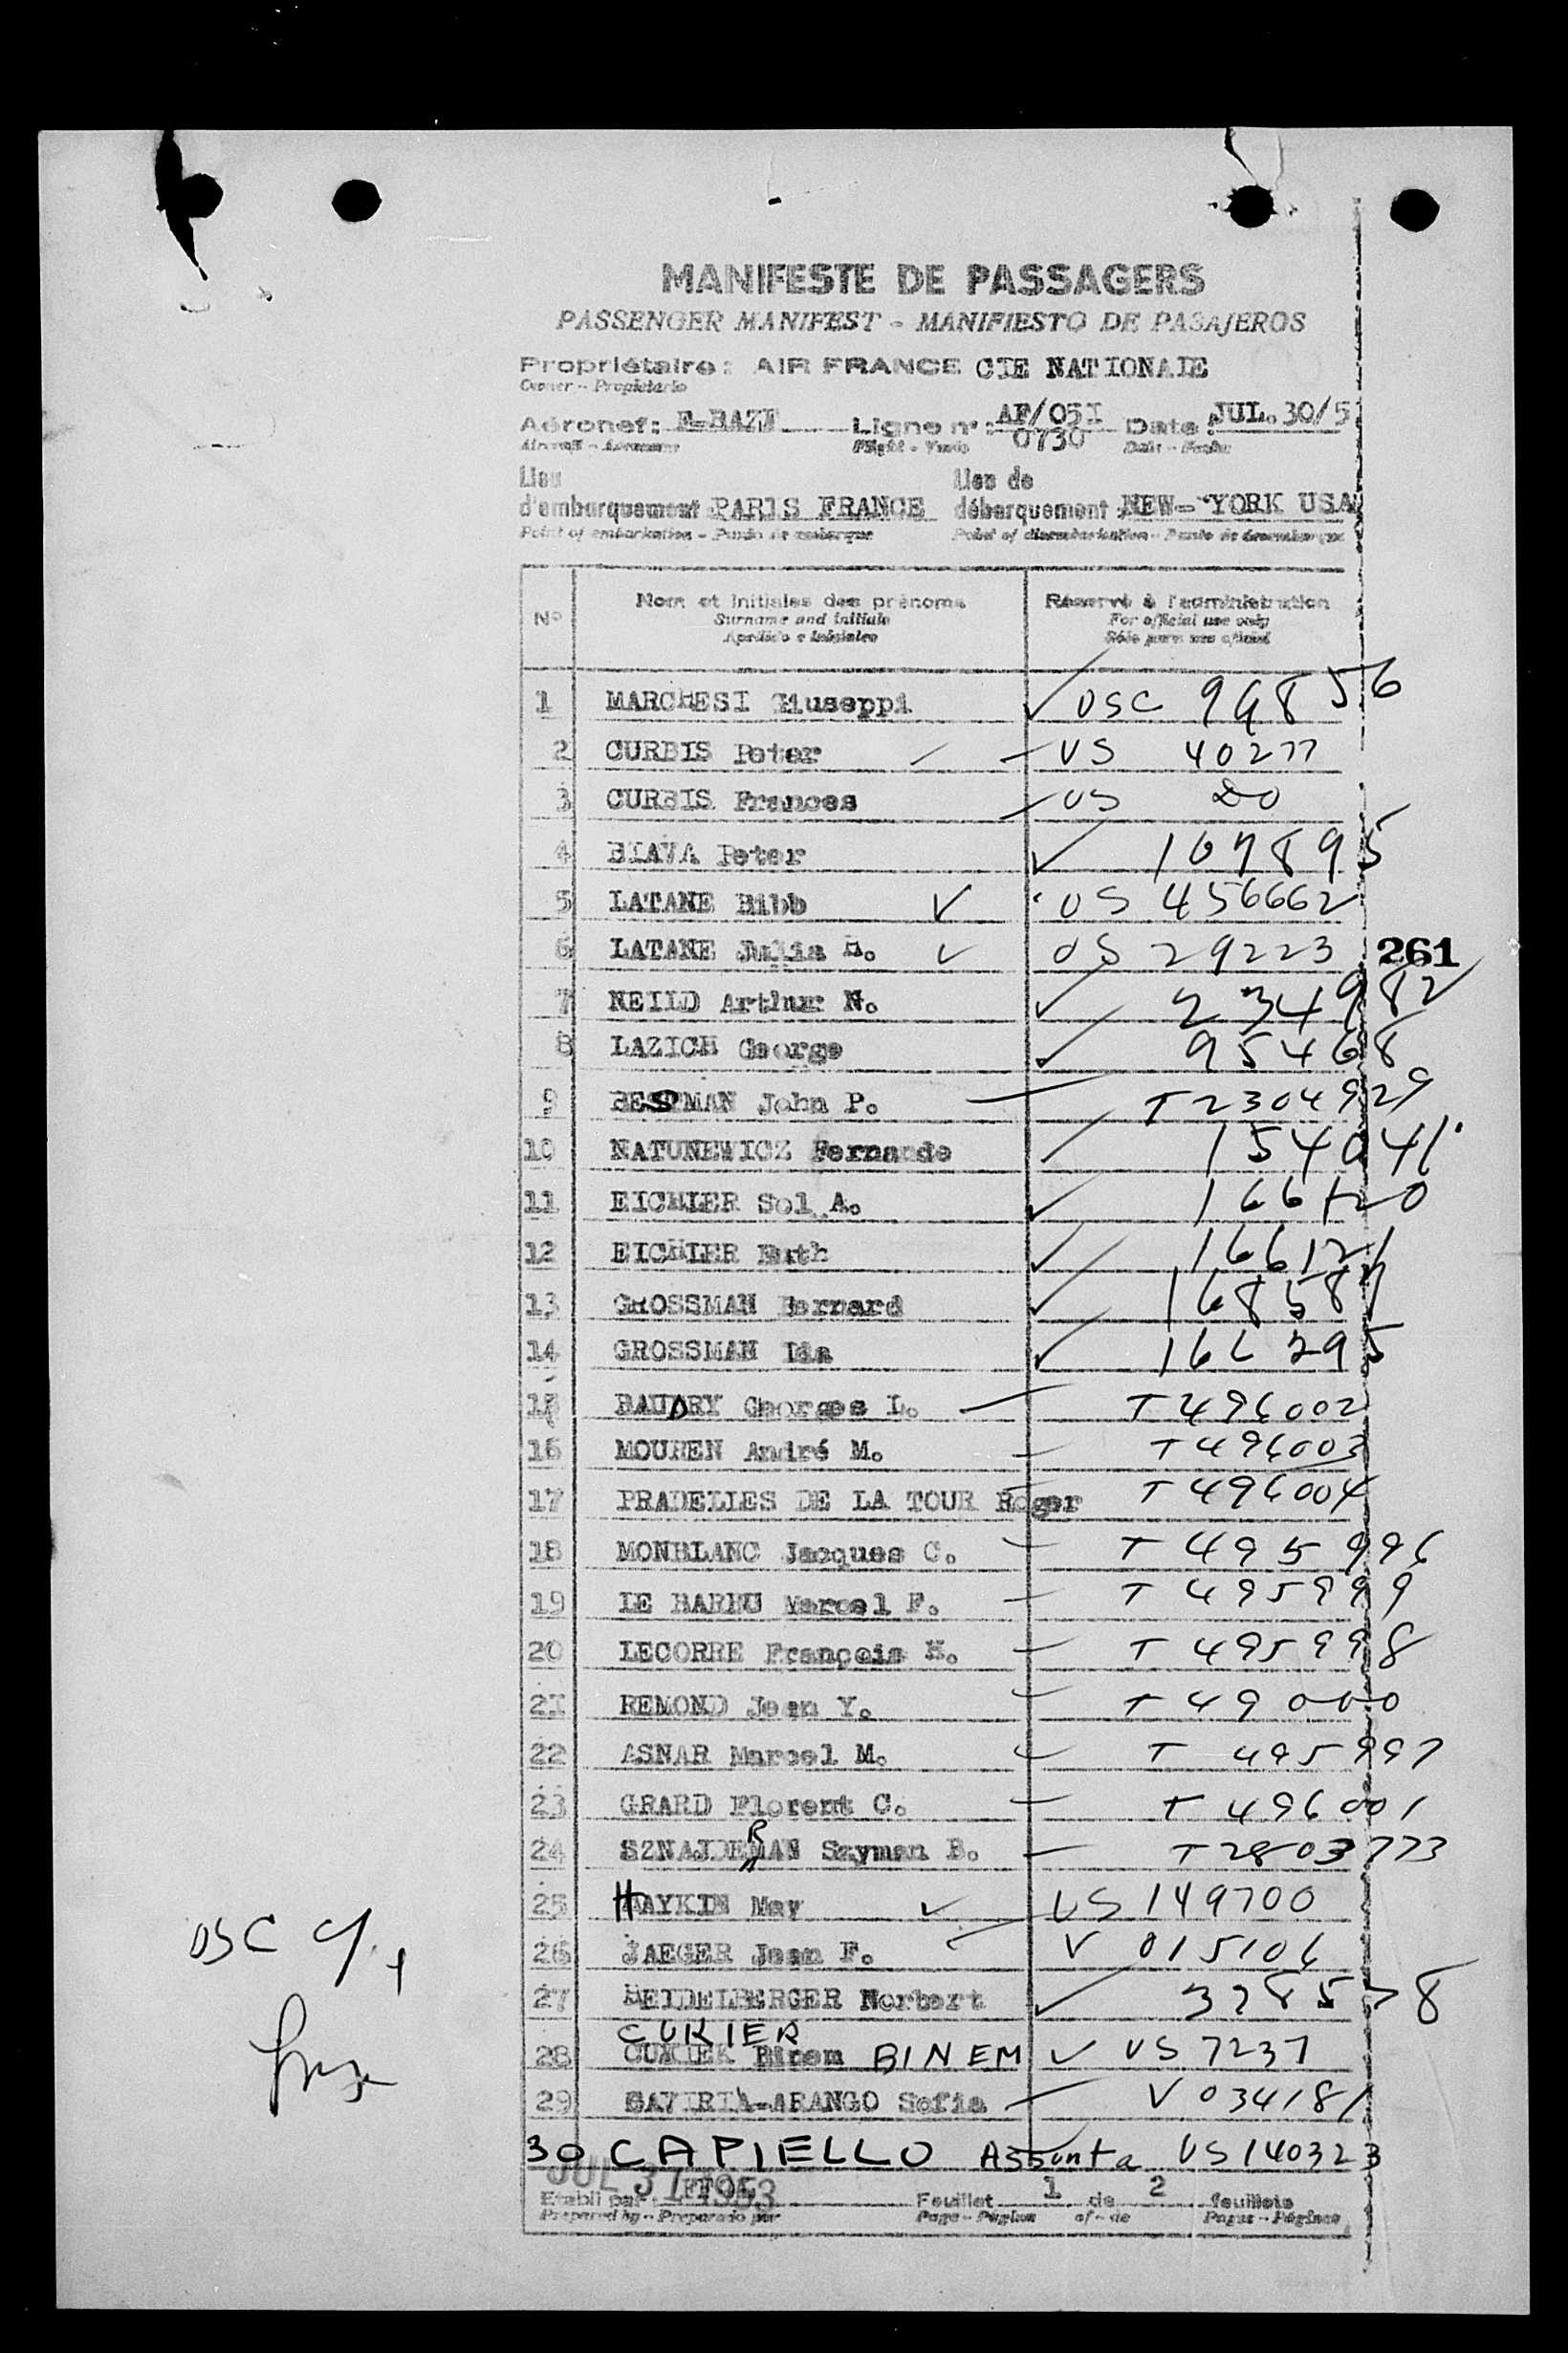 MANIFESTE DE PASSAGERS
PASSENGER MANIFEST - MANIFIESTO DE PASAJEROS
Propriétaire: AIR FRANCE CIE NATIONALE
Owner - Propietario
Aéronef: F-BAZE Ligne n°: AF/051 0730 Date: JUL. 30/5
Lieu d'embarquement PARIS FRANCE Lieu de débarquement: NEW-YORK USA
Point of embarkation - Punto de embarque Point of disembarkation - Punto de desembarque
N° Nom et initiales des prénoms Réservé à l'administration
Surname and initials For official use only
Apellido e iniciales Sólo para uso oficial
1 MARCHESI Giuseppi USC 96856
2 CURBIS Peter US 40277
3 CURBIS Frances US DO
4 BIAVA Peter 107895
5 LATANE Bibb US 456662
6 LATANE Julia US 29223 261
7 NEILD Arthur N. 234982
8 LAZICH George 95468
9 BESTMAN John P. T 2304929
10 NATUNEWICZ Fernande 154041
11 EICHLER Sol A. 166120
12 EICHLER Ruth 166121
13 GROSSMAN Bernard
14 GROSSMAN Ida 166295
15 BAUDRY Georges L. T 496002
16 MOUREN André M. T 496003
17 PRADELLES DE LA TOUR Roger T 496004
18 MONBLANC Jacques C. T 495996
19 LE BARBU Marcel F. T 495999
20 LECORRE François T 495998
21 REMOND Jean Y. T 49 000
22 ASNAR Marcel M. T 495997
23 GRARD Florent C. T 496001
24 SZNAJDERMAN Szyman B. T 2803773
25 HAYKIN May US 149700
26 JAEGER Jean F. V 015106
27 HEIDELBERGER Norbert 328578
CUKIER
28 Binem BINEM US 7237
29 GAVIRIA-ARANGO Sofia V 034181
30 CAPIELLO Assunta US 140323
JUL 31 1953
Etabli par: Feuillet 1 de 2 feuillets
Prepared by - Preparado por Page - Página of - de Pages - Páginas
USC